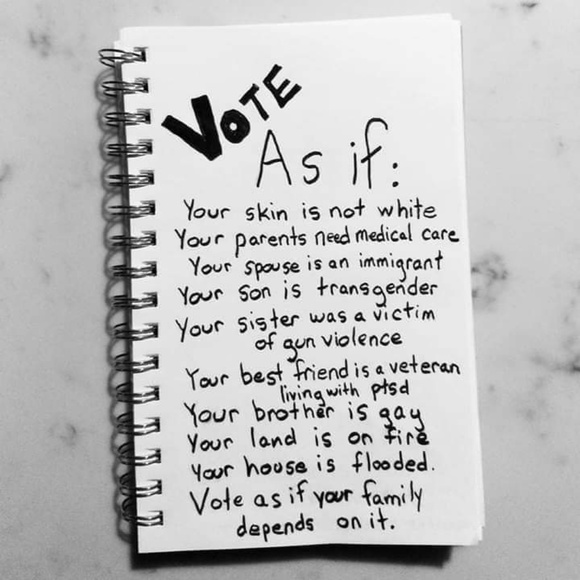 VOTE
As if:
Your skin is not white
Your parents need medical care
Your spouse is an immigrant
Your son is transgender
Your sister was a victim
of gun violence
Your best friend is a veteran
living with ptsd
Your brother is gay
Your land is on fire
Your house is flooded.
Vote as if your family
depends on it.